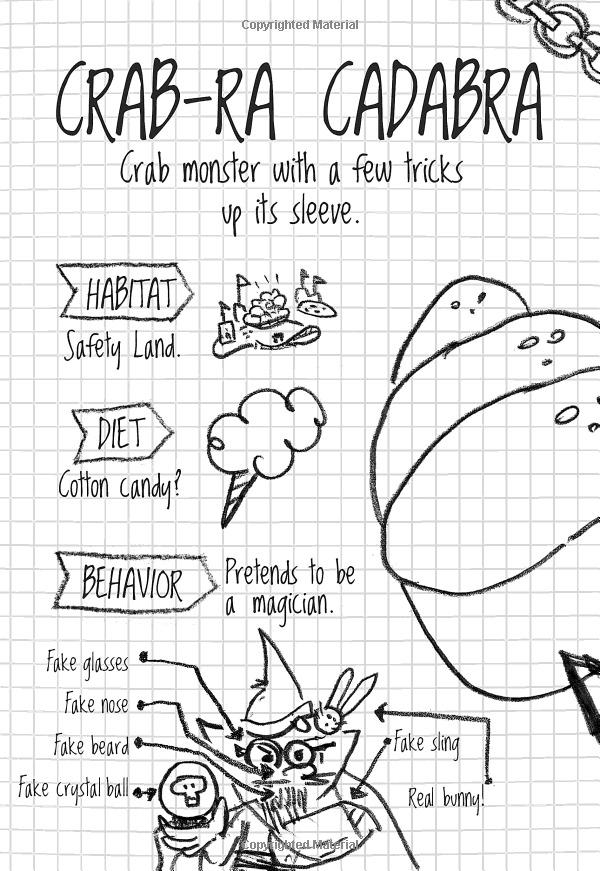 Copyrighted Material
CRAB-RA CADABRA
Crab monster with a few tricks
up its sleeve.
HABITAT
Safety Land.
DIET
Cotton candy?
BEHAVIOR
Pretends to be
a magician.
Fake glasses
Fake nose
Fake beard
Fake crystal ball
Fake sling
Real bunny!
Copyrighted Material